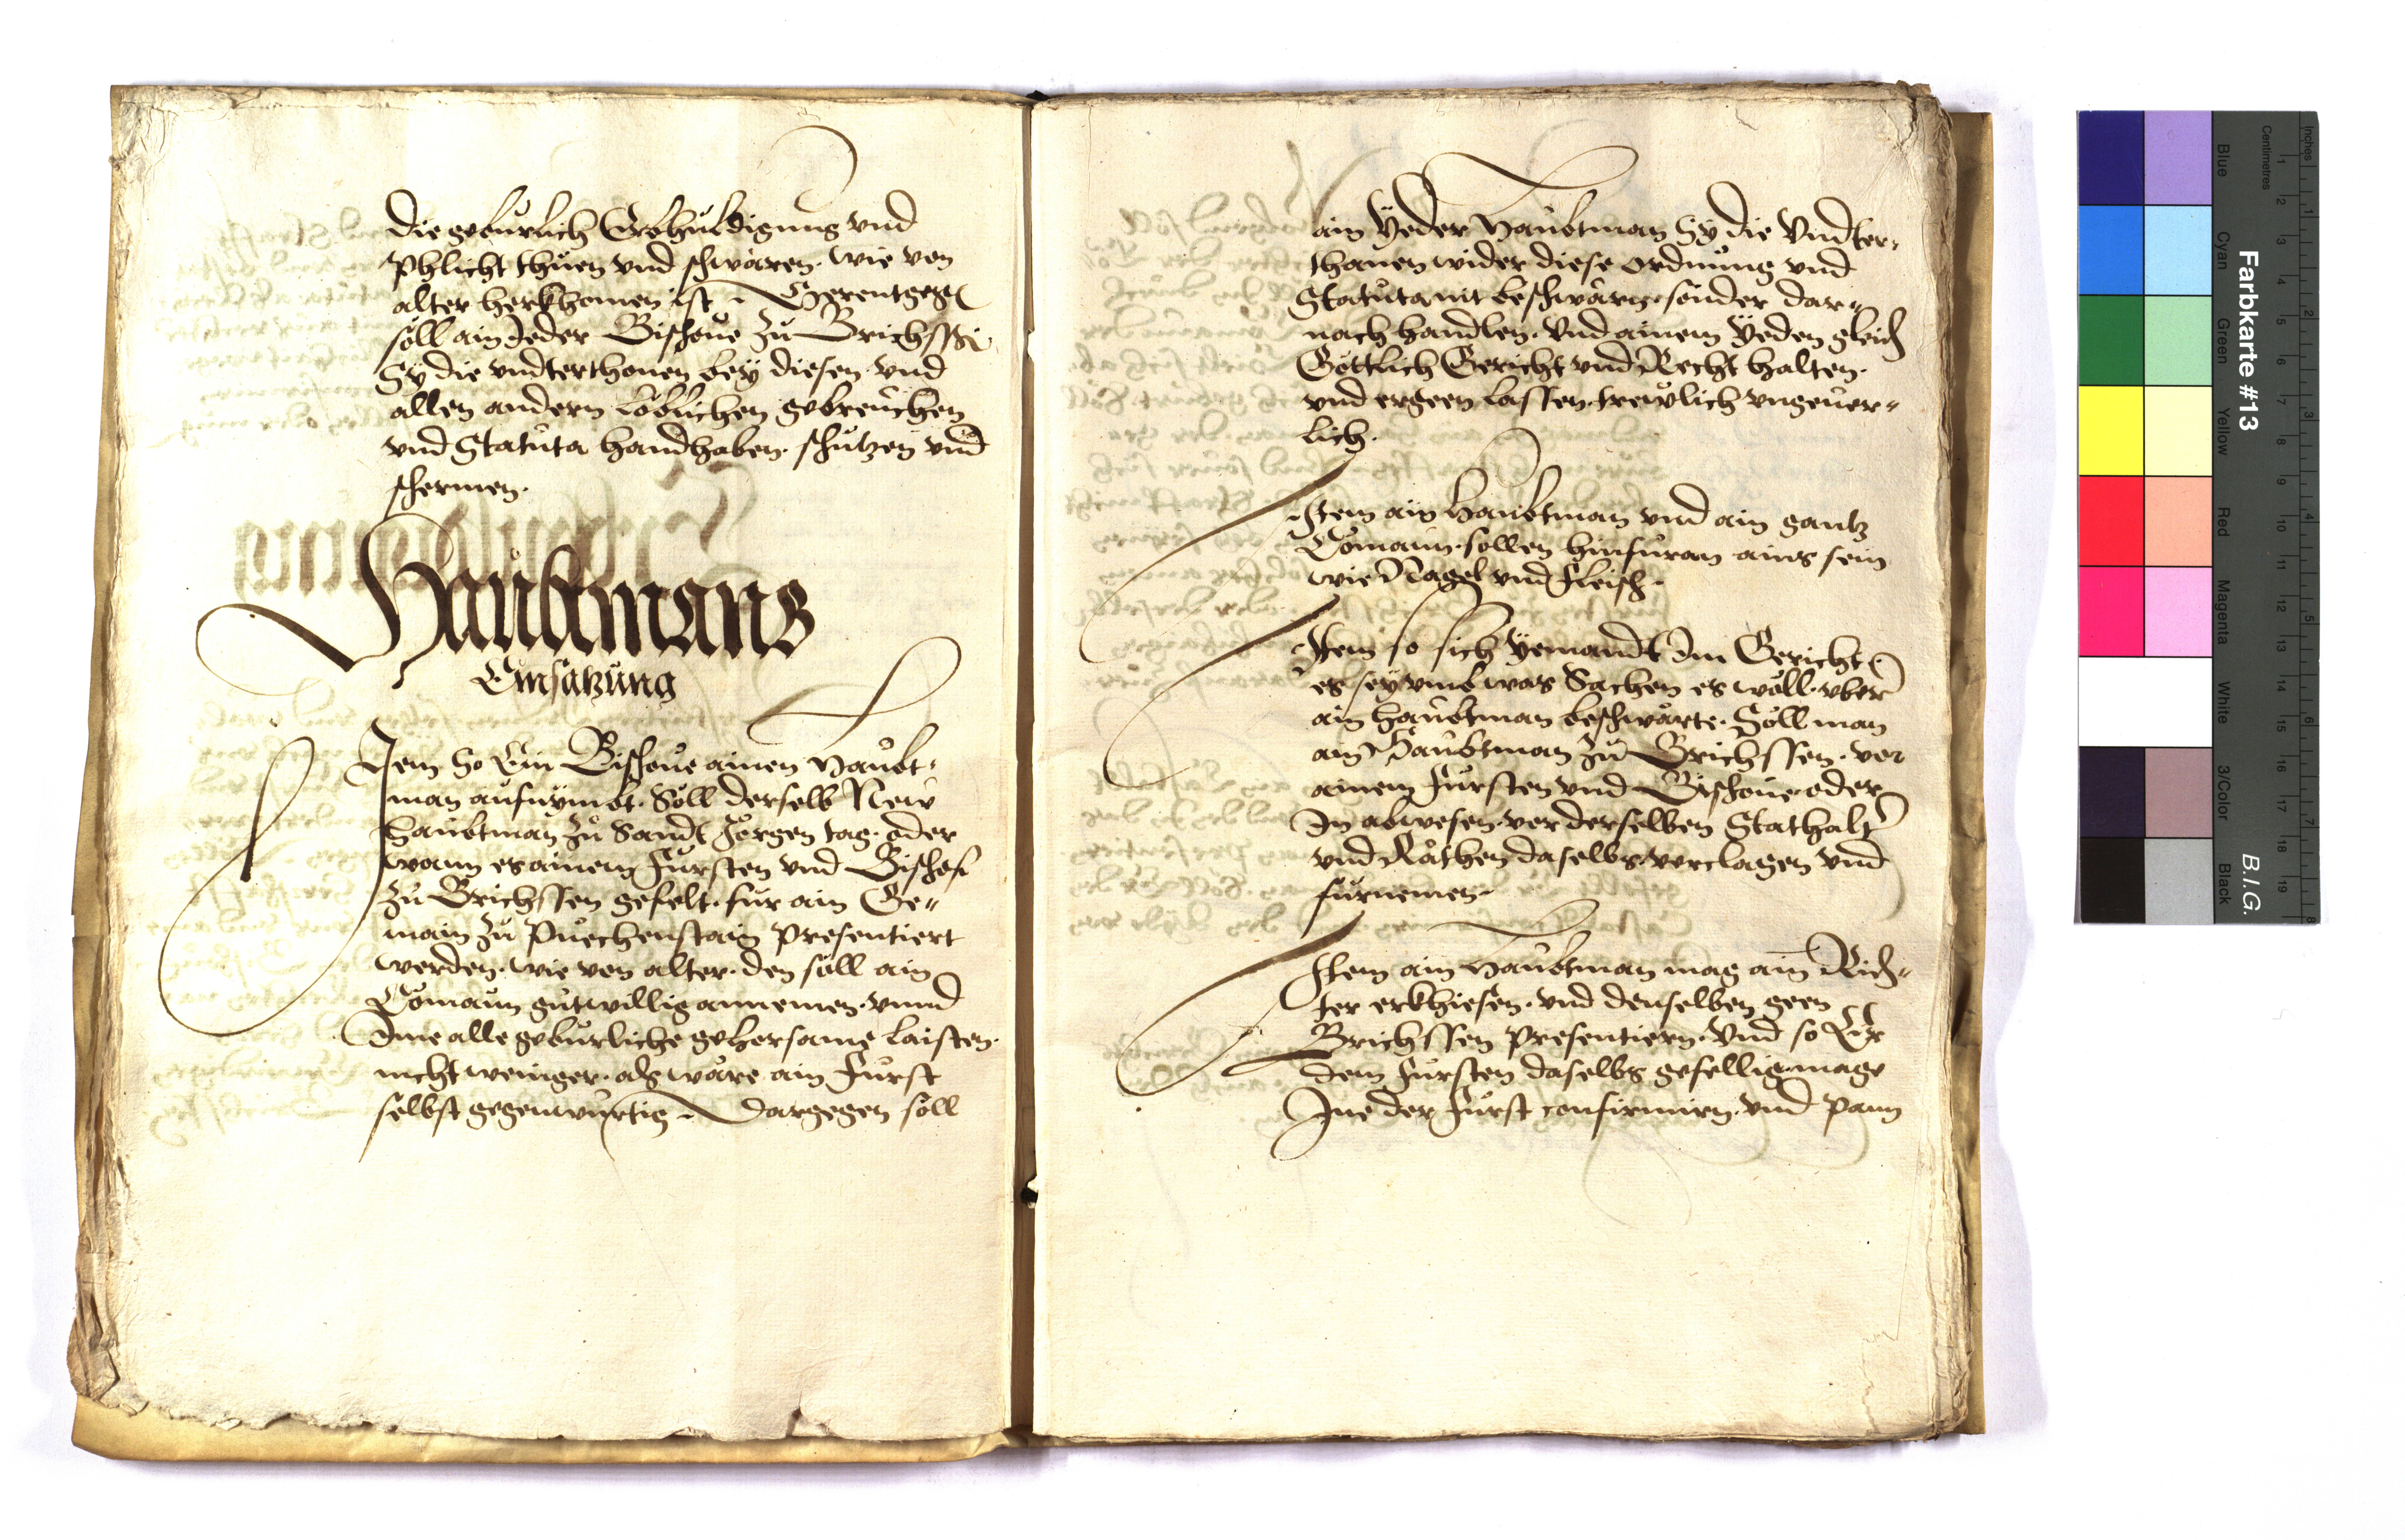 die gebürlich Erbhuldigung vnd
Phlicht thuen vnd schwären. Wie von
alter herkhomen ist. Herentgegen
soll ain Ieder Bischoue zu Brichssen
Sy die vndterthonen bey diesen vnd
allen andern löblichen gebreüchen
vnd Statuta handhaben. schutzen vnd
schermen.
Haubtmans
Einsatzung
Item So Ein Bischoue ainen Haubt-
man aufnymbt. Soll derselb New
Haubtman zu Sandt Jörgen tag. oder
wann es ainem Fürsten vnd Bischof
zu Brichssen gefelt. für ain Ge-
main zu Puechenstain Presentiert
werden. wie von alter. den soll ain
Comaun gutwillig annemen. vnnd
Ime alle gebürliche gehorsame laisten.
nicht weniger. als wäre ain Fürst
selbst gegenwürtig. Dargegen soll
ain Yeder Haubtman Sy die Vndter-
thanen wider diese ordnung vnd
Statuta nit beschwärn. sonder dar-
nach handlen. Vnd ainem Yeden gleich
Göttlich Gericht vnd Recht halten.
vnd ergeen lassen. trewlich vngeuer-
lich.
Item ain Haubtman vnd ain gantz
Comaun. sollen hinfüran ains sein
wie Nagel vnd Fleisch.
Item so sich Yemandt Im Gericht
es sey vmb was Sachen es wöll. vber
ain Haubtman beschwärte. Soll man
ain Haubtman zu Brichssen. vor
ainem Fürsten vnd Bischoue. oder
In abwesen. vor derselben Stathalter
vnd Räthen daselbs. verclagen vnd
fürnemen.
Item ain Haubtman mag ain Rich-
ter erkhiesen. vnd denselben geen
Brichssen Presentiern. Vnd so Er
dem Fürsten daselbs gefellig. mage
Ine der Fürst confirmirn. vnd Pann
Farbkarte #13
B.I.G.
Inches
Centimetres
Blue
Cyan
Green
Yellow
Red
Magenta
White
3/Color
Black
1 2 3 4 5 6 7 8 9 10 11 12 13 14 15 16 17 18 19
1 2 3 4 5 6 7 8